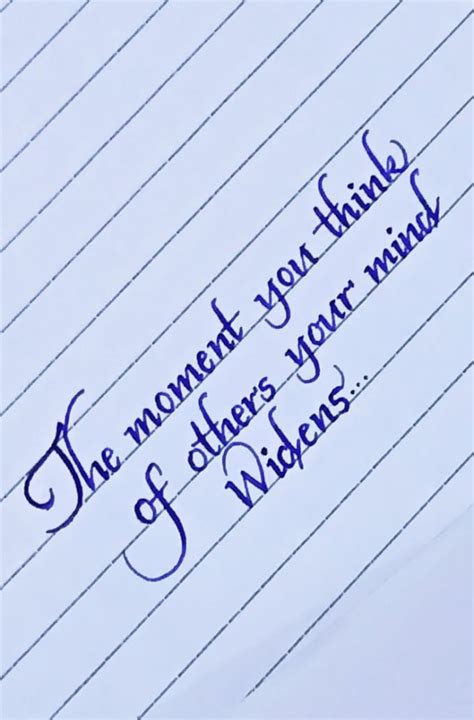 The moment you think
of others your mind
Widens...